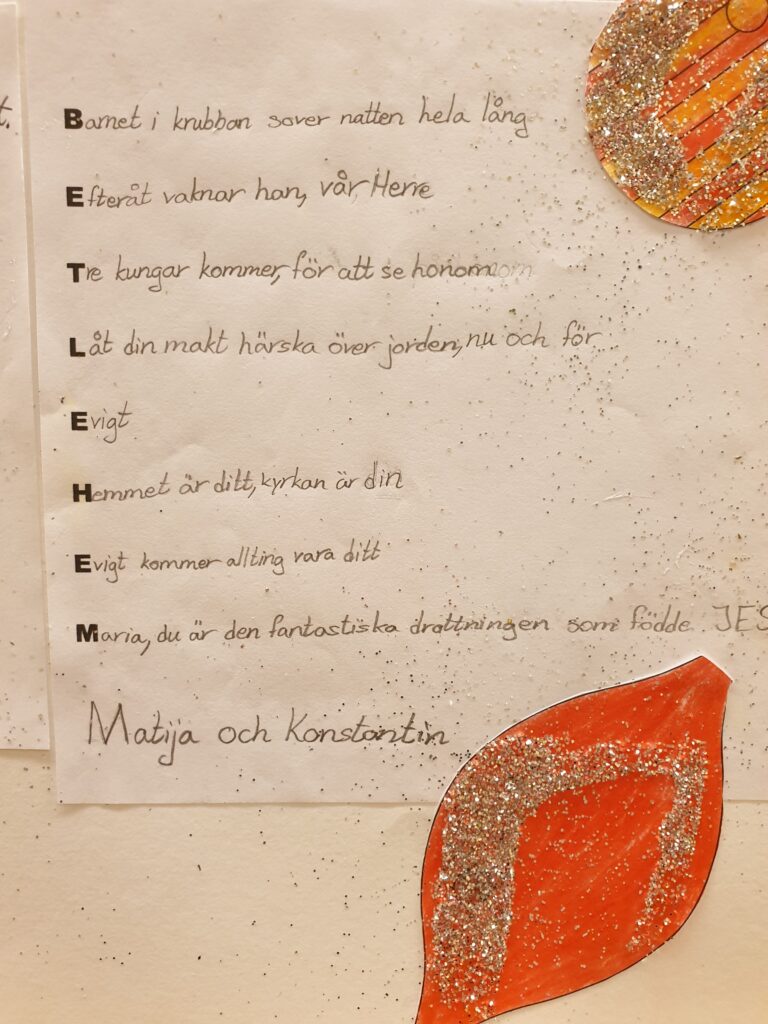 t.
Barnet i krubban sover natten hela lång
Efteråt vaknar han, vår Herre
Tre kungar kommer, för att se honom
Låt din makt härska över jorden, nu och för
Evigt
Hemmet är ditt, kyrkan är din
Evigt kommer allting vara ditt
Maria, du är den fantastiska drottningen som födde JES
Matija och Konstantin